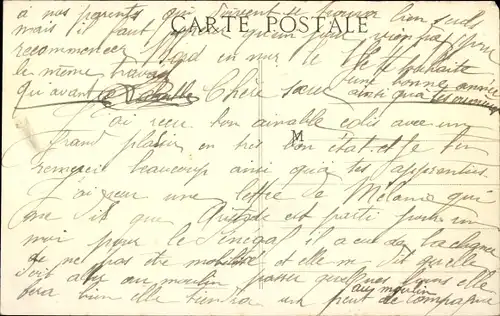 à nos parents qui doivent se trouver bien seuls
CARTE POSTALE
mais il faut qu'un jour vienne pour
recommencer
le même travail je te souhaite
une bonne année
qu'avant Chère sœur ainsi qu'à
J'ai reçu ton aimable colis avec un
M
grand plaisir en très bon état et je t'en
remercie beaucoup ainsi qu'à tes apprenties.
J'ai reçu une lettre de Mélanie qui
me dit que Aristide est parti pour un
mois pour le Sénégal il a eu de la chance
de ne pas être mobilisé et elle me dit qu'elle
doit aller au moulin passer quelques jours elle
au moulin
fera bien elle tiendra un peut de compagnie